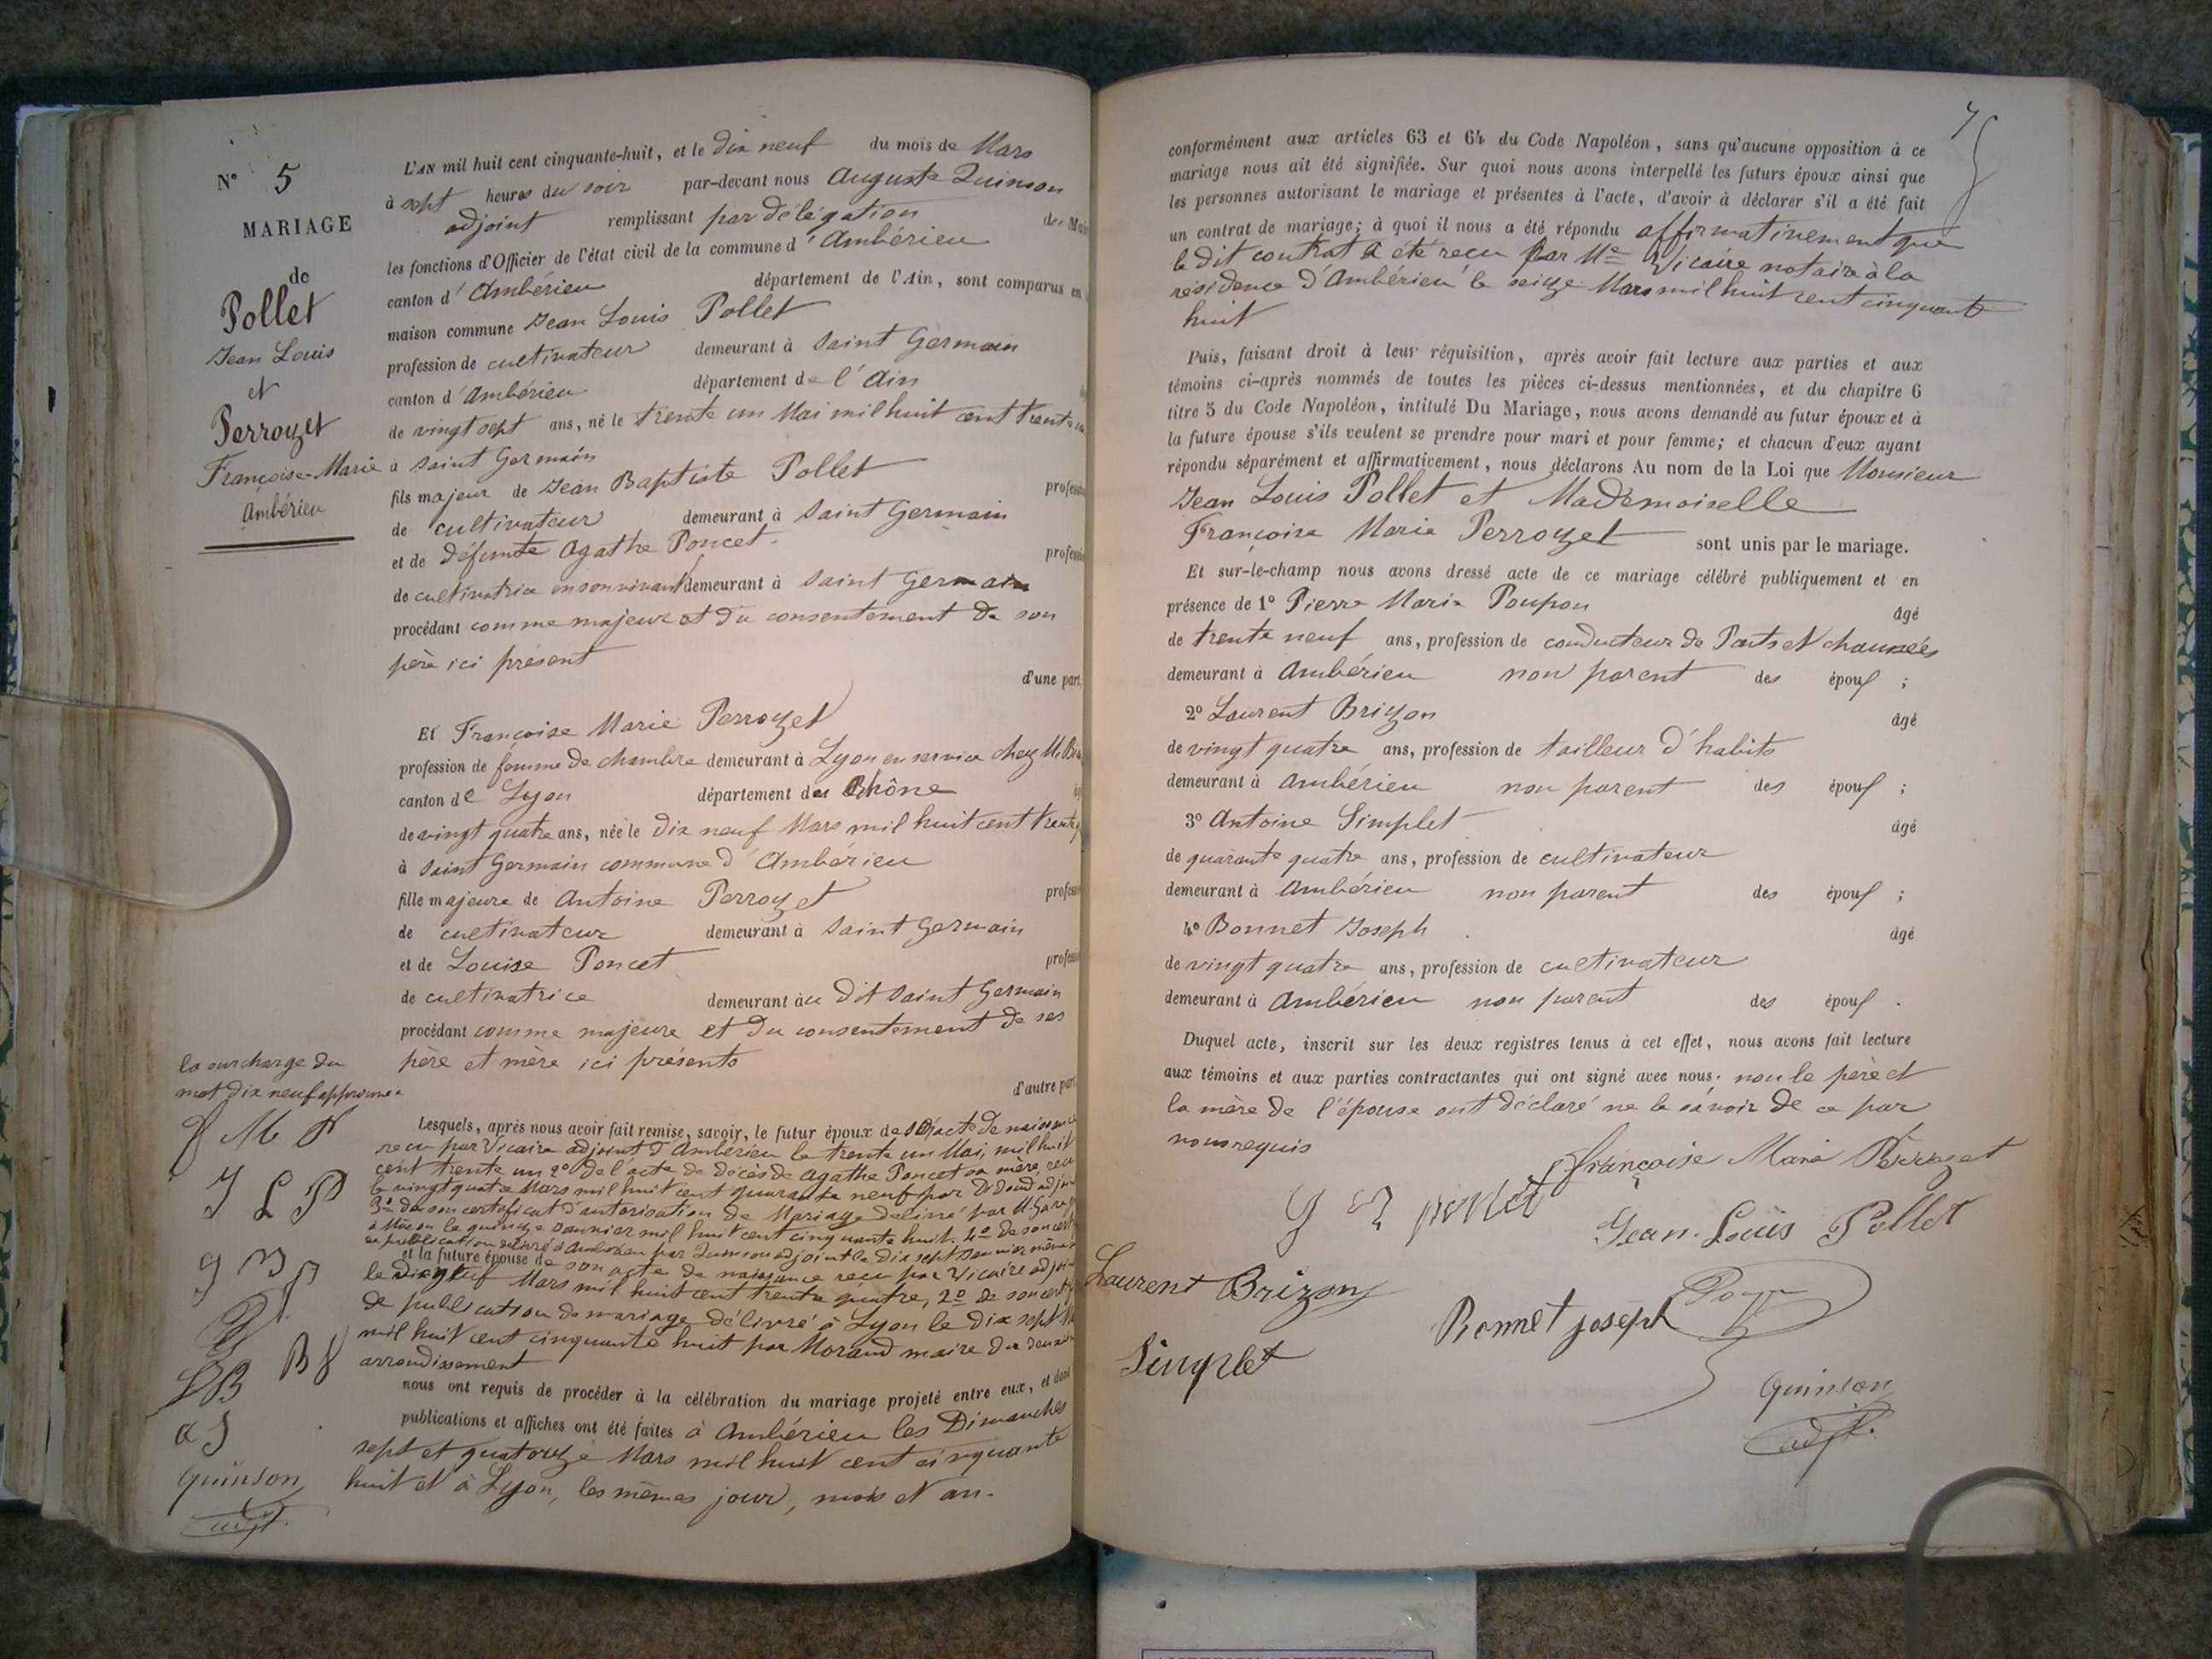 N° 5
MARIAGE
de
Pollet
Jean Louis
et
Perrozet
Françoise-Marie
Ambérieu
L'AN mil huit cent cinquante-huit, et le dix neuf du mois de Mars
à sept heures du soir par-devant nous Auguste Quinson
adjoint remplissant par délégation de Mai
les fonctions d'Officier de l'état civil de la commune d'Ambérieu
canton d'Ambérieu département de l'Ain, sont comparus en
maison commune Jean Louis Pollet
profession de cultivateur demeurant à Saint Germain
canton d'Ambérieu département de l'Ain
de vingt sept ans, né le trente un Mai mil huit cent trente
à Saint Germain
fils majeur de Jean Baptiste Pollet profess
de cultivateur demeurant à Saint Germain
et de défunte Agathe Poncet professi
de cultivatrice en son vivant demeurant à Saint Germain
procédant comme majeur et du consentement de son
père ici présent
d'une part
Et Françoise Marie Perrozet
profession de femme de chambre demeurant à Lyon en service chez M.
canton de Lyon département du Rhône
de vingt quatre ans, née le dix neuf Mars mil huit cent trente
à Saint Germain commune d'Ambérieu
fille majeure de Antoine Perrozet profess
de cultivateur demeurant à Saint Germain
et de Louise Poncet profess
de cultivatrice demeurant au dit Saint Germain
procédant comme majeure et du consentement de ses
père et mère ici présents
d'autre part
la surcharge du
mot dix neuf approuvée
J L P
B J
L B
a S
Quinson
adjt.
Lesquels, après nous avoir fait remise, savoir, le futur époux de 1° acte de naissance
recu par Vicaire adjoint d'Ambérieu le trente un Mai, mil huit
cent trente un 2° de l'acte de décès de Agathe Poncet sa mère, recu
le vingt quatre Mars mil huit cent quarante neuf par adjoi
3° de son certificat d'autorisation de Mariage délivré par M.
à Mâcon le quinze Janvier mil huit cent cinquante huit. 4° de son certi
de publication délivré à Ambérieu par Quinson adjoint le dix sept
et la future épouse de son acte de naissance recu par Vicaire adjoi
le dix neuf Mars mil huit cent trente quatre, 2° de son cert
de publication de mariage délivré à Lyon le dix sept
mil huit cent cinquante huit par Morand maire du deuxi
arrondissement
nous ont requis de procéder à la célébration du mariage projeté entre eux, et dont
publications et affiches ont été faites à Ambérieu les Dimanches
sept et quatorze Mars mil huit cent cinquante
huit et à Lyon, les mêmes jour, mois et an.
7
conformément aux articles 63 et 64 du Code Napoléon, sans qu'aucune opposition à ce
mariage nous ait été signifiée. Sur quoi nous avons interpellé les futurs époux ainsi que
les personnes autorisant le mariage et présentes à l'acte, d'avoir à déclarer s'il a été fait
un contrat de mariage; à quoi il nous a été répondu affirmativement que
le dit contrat a été recu par Me Vicaire notaire à la
résidence d'Ambérieu le seize Mars mil huit cent cinquante
huit
Puis, faisant droit à leur réquisition, après avoir fait lecture aux parties et aux
témoins ci-après nommés de toutes les pièces ci-dessus mentionnées, et du chapitre 6
titre 5 du Code Napoléon, intitulé Du Mariage, nous avons demandé au futur époux et à
la future épouse s'ils veulent se prendre pour mari et pour femme; et chacun d'eux ayant
répondu séparément et affirmativement, nous déclarons Au nom de la Loi que Monsieur
Jean Louis Pollet et Mademoiselle
Françoise Marie Perrozet sont unis par le mariage.
Et sur-le-champ nous avons dressé acte de ce mariage célébré publiquement et en
présence de 1° Pierre Marie Poupon âgé
de trente neuf ans, profession de conducteur de Ponts et chaussées
demeurant à Ambérieu non parent des époux ;
2° Laurent Brizon âgé
de vingt quatre ans, profession de tailleur d'habits
demeurant à Ambérieu non parent des époux ;
3° Antoine Simplet âgé
de quarante quatre ans, profession de cultivateur
demeurant à Ambérieu non parent des époux ;
4° Bonnet Joseph âgé
de vingt quatre ans, profession de cultivateur
demeurant à Ambérieu non parent des époux .
Duquel acte, inscrit sur les deux registres tenus à cet effet, nous avons fait lecture
aux témoins et aux parties contractantes qui ont signé avec nous; non le père et
la mère de l'épouse ont déclaré ne le savoir de ce par
nous requis
françoise Marie Perrozet
J B pollet
Jean-Louis Pollet
Laurent Brizon
Bonnet joseph
Simplet
Quinson
adjt.